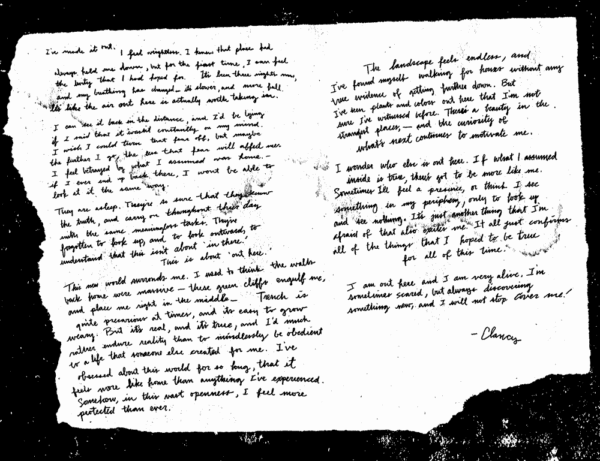 I've made it out. I feel weightless. I knew that place had
always held me down, but for the first time, I can feel
the gravity that I had hoped for. It's been three nights now,
and my breathing has changed - it's slower, and more full.
It's like the air out here is actually worth taking in.
I can see it back in the distance, and I'd be lying
if I said that it wasn't constantly on my mind.
I wish I could turn that fear off, but maybe
the further I go, the less that fear will affect me.
I feel betrayed by what I assumed was home. -
if I ever end up back there, I won't be able to
look at it the same way.
They are asleep. They're so sure that they know
the truth, and carry on throughout their day
with the same meaningless tasks. They've
forgotten to look up, and to look outward, to
understand that this isn't about 'in there.'
This is about 'out here.'
This new world surrounds me. I used to think the walls
back home were massive - these green cliffs engulf me,
and place me right in the middle - Trench is
quite precarious at times, and it's easy to grow
weary. But it's real, and it's true, and I'd much
rather endure reality than to mindlessly be obedient
to a life that someone else created for me. I've
obsessed about this world for so long, that it
feels more like home than anything I've experienced.
Somehow, in this vast openness, I feel more
protected than ever.
The landscape feels endless, and
I've found myself walking for hours without any
true evidence of getting further down. But
I've seen plants and colors out here that I'm not
sure I've witnessed before. There's a beauty in the
strangest places, - and the curiosity of
what's next continues to motivate me.
I wonder who else is out here. If what I assumed
inside is true, there's got to be more like me.
Sometimes I'll feel a presence, or think I see
something in my periphery, only to look up
and see nothing. It's just another thing that I'm
afraid of that also excites me. It all just confirms
all of the things that I hoped to be true
for all of this time.
I am out here and I am very alive. I'm
sometimes scared, but always discovering
something new, and I will not stop. Cover me!
- Clancy